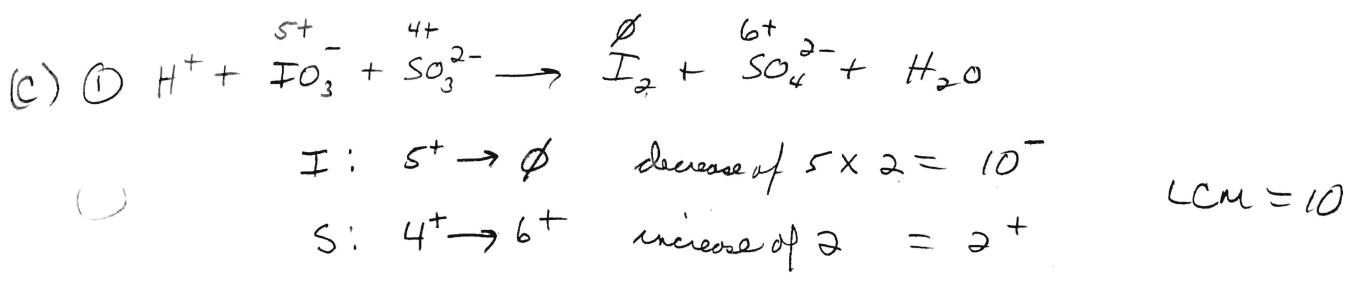 (C) ① H⁺ + IO₃⁻ + SO₃²⁻ → I₂ + SO₄²⁻ + H₂O
5+ 4+ ∅ 6+
I: 5⁺ → ∅ decrease of 5 x 2 = 10⁻
S: 4⁺ → 6⁺ increase of 2 = 2⁺
LCM = 10